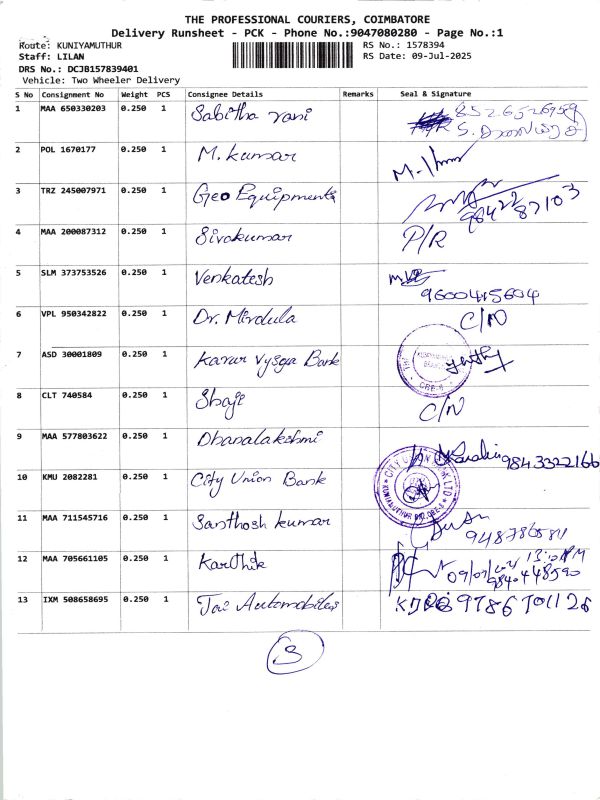 THE PROFESSIONAL COURIERS, COIMBATORE
Delivery Runsheet - PCK - Phone No.:9047080280 - Page No.:1
Route: KUNIYAMUTHUR RS No.: 1578394
Staff: LILAN RS Date: 09-Jul-2025
DRS No.: DCJB157839401
Vehicle: Two Wheeler Delivery
S No Consignment No Weight PCS Consignee Details Remarks Seal & Signature
1 MAA 650330203 0.250 1 Sabitha rani 8526526959
2 POL 1670177 0.250 1 M. Kumar
3 TRZ 245007971 0.250 1 Geo Equipments 98422 87103
4 MAA 200087312 0.250 1 Sivakumar P/R
5 SLM 373753526 0.250 1 Venkatesh 9600415604
6 VPL 950342822 0.250 1 Dr. Mirdula C/N
7 ASD 30001809 0.250 1 Karur Vysya Bank
8 CLT 740584 0.250 1 Shaji C/N
9 MAA 577803622 0.250 1 Dhanalakshmi 9843322166
10 KMU 2082281 0.250 1 City Union Bank CITY UNION BANK LTD
11 MAA 711545716 0.250 1 Santhosh kumar
12 MAA 705661105 0.250 1 Karthik 9840448590
13 IXM 508658695 0.250 1 Jai Automobiles 9786701126